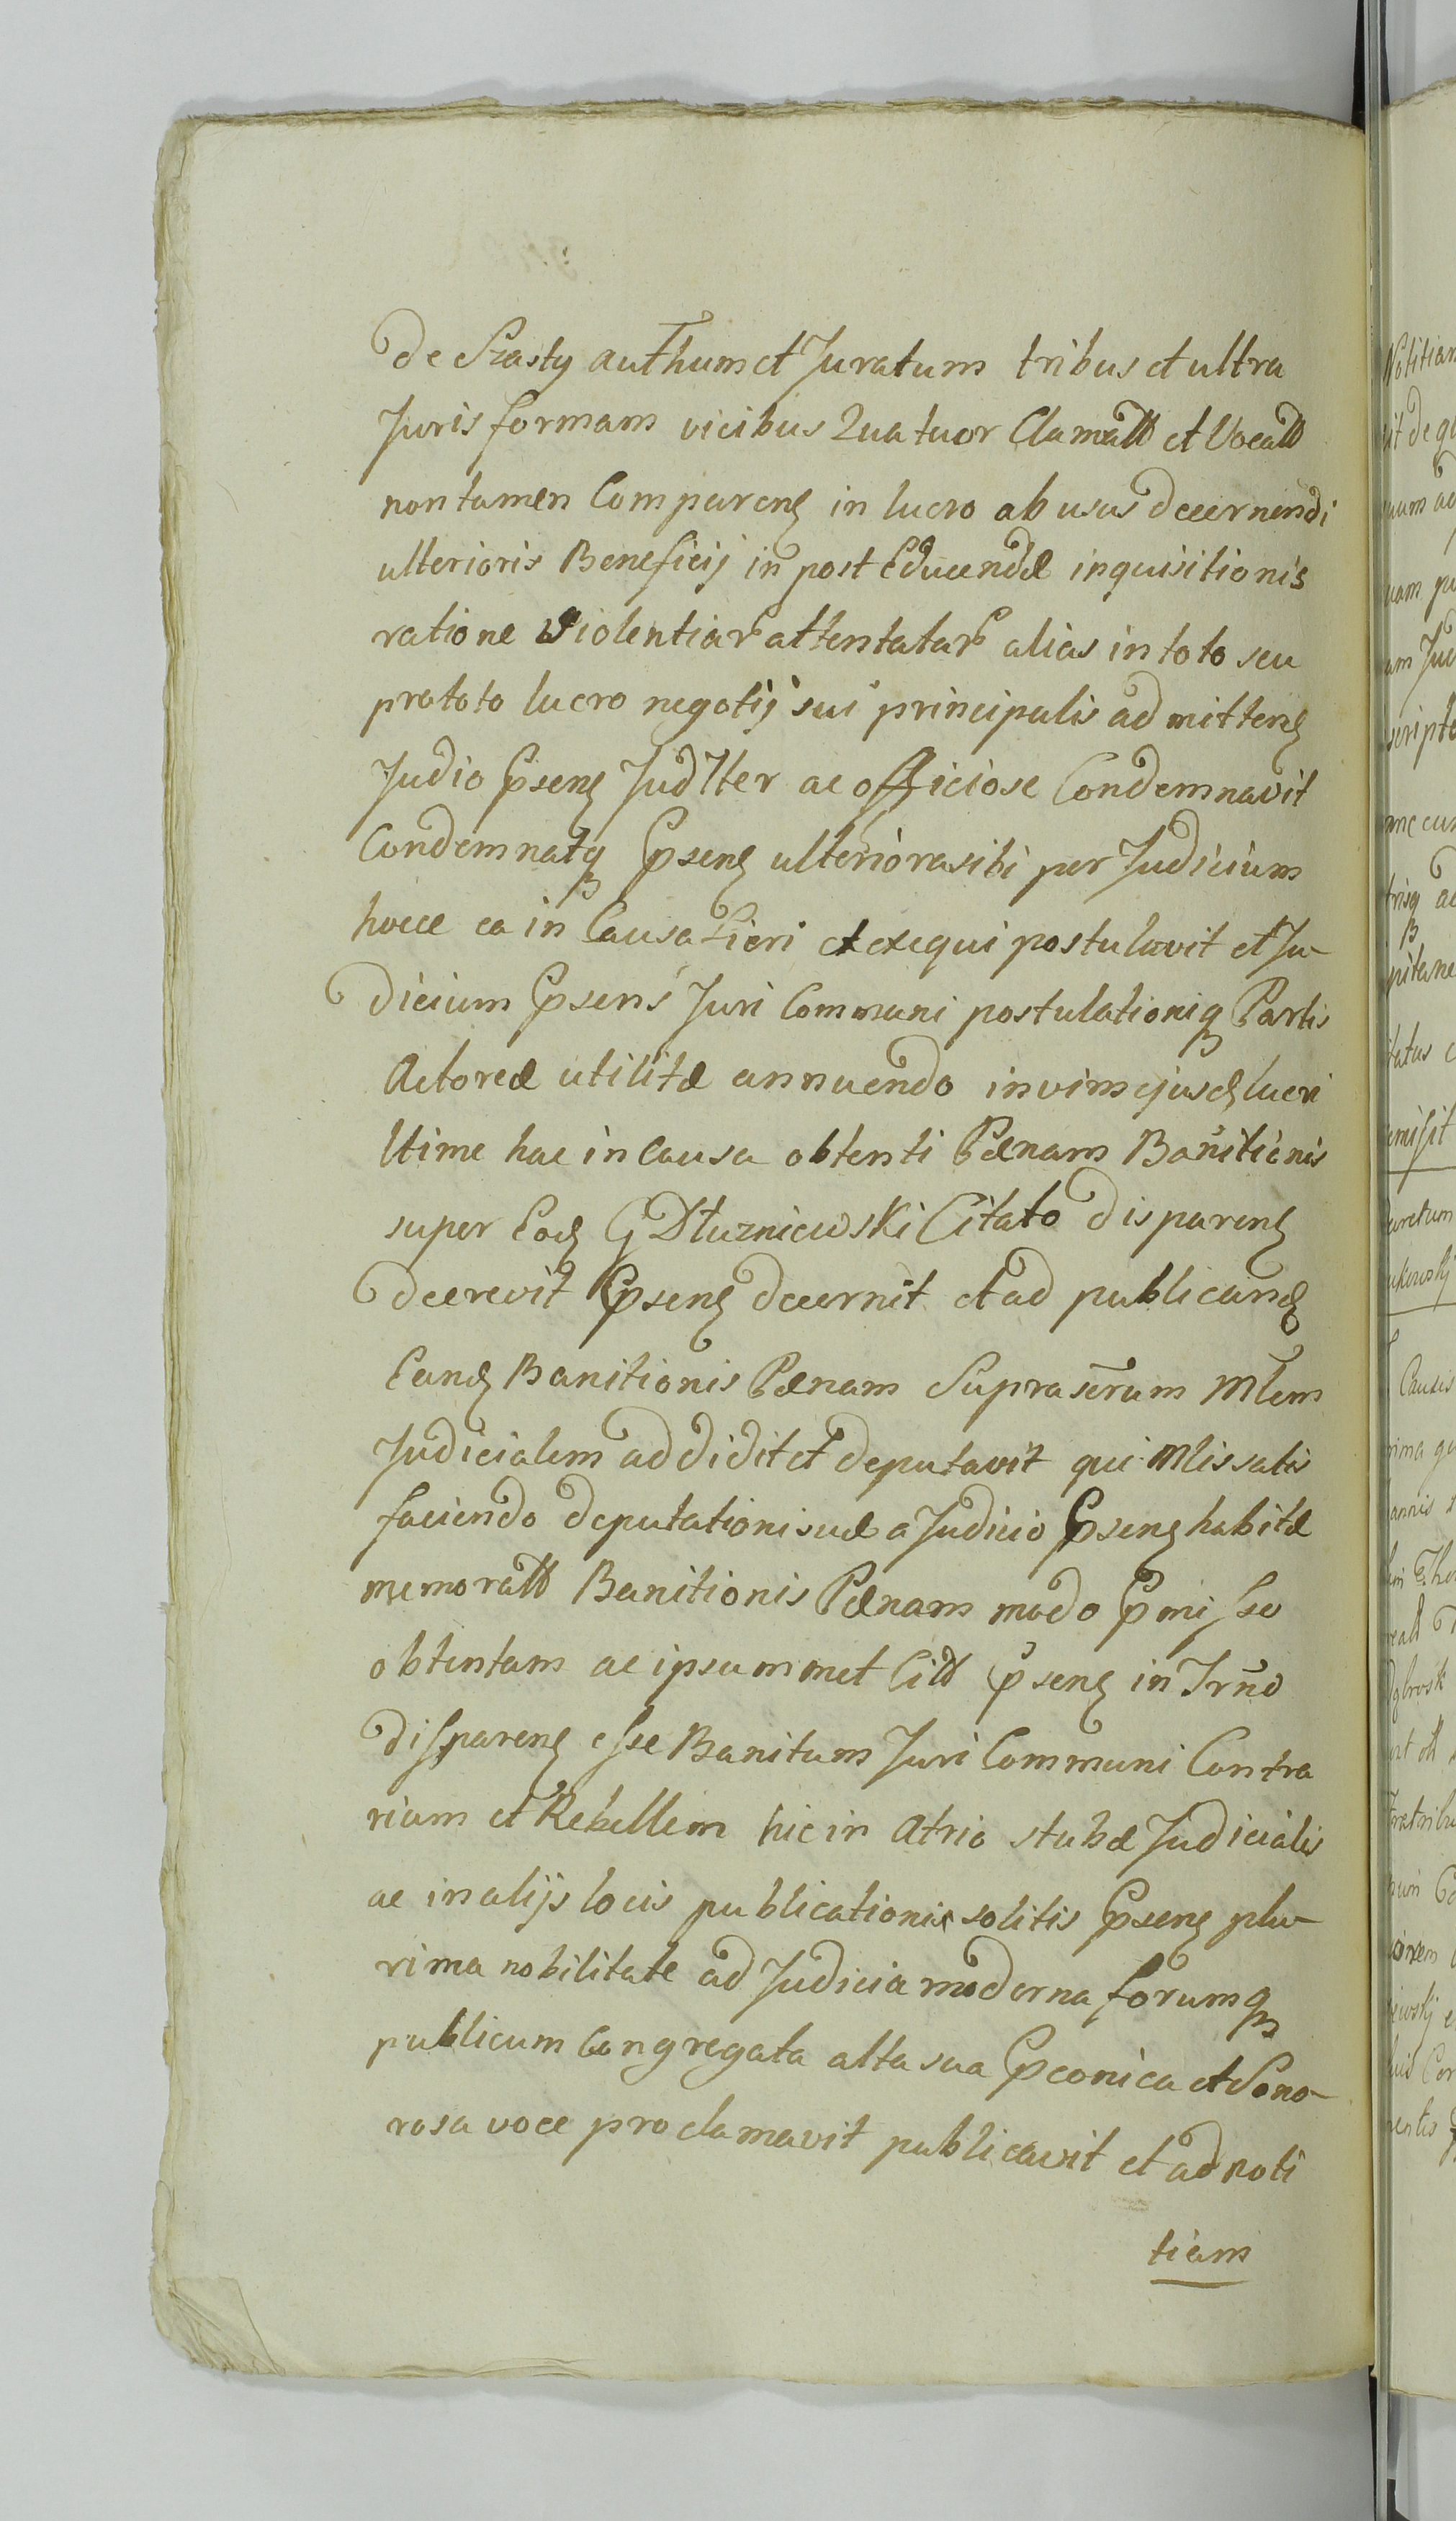 De Szasty authum et Juratum tribus et ultra
Juris formam vicibus Quatuor Clamatt et Vocatt
non tamen Comparenę in lucro ab usus decernendi
ulterioris Beneficij in post Educendæ inquisitionis
ratione violentiar attentatar alias in toto seu
pro toto lucro negotij sui principalis admittenę
Judio Psenę Judlter ac officiose Condemnavit
Condemnatq Psenę ulteriora sibi per Judicium
hocce ea in Causa Fieri et exequi postulavit et Ju-
dicium Psens Juri Communi postulationiq Partis
Actoreæ utilitæ annuendo in vim ejusdę lucri
ltime hac in Causa obtenti Pænam Banitionis
super Eodę G Dłuzniewski Citato disparenę
decrevit Psenę decernit et ad publicandę
Eandę Banitionis Pænam Suprascrum Mlem
Judicialem addidit et deputavit qui Mlis satis
faciendo deputationi suæ a Judicio Psenę habitæ
memoratt Banitionis Pænam modo Pmisso
obtentam ac ipsummet Citt psenę in Trno
disparenę esse Banitum Juri Communi Contra
rium et Rebellem hic in Atrio stubæ Judicialis
ac in alijs locis publicationis solitis Psenę plu-
rima nobilitate ad Judicia moderna forumq
publicum Congregata alta sua Pconica et Sono-
rosa voce proclamavit publicavit et ad noti
tiam